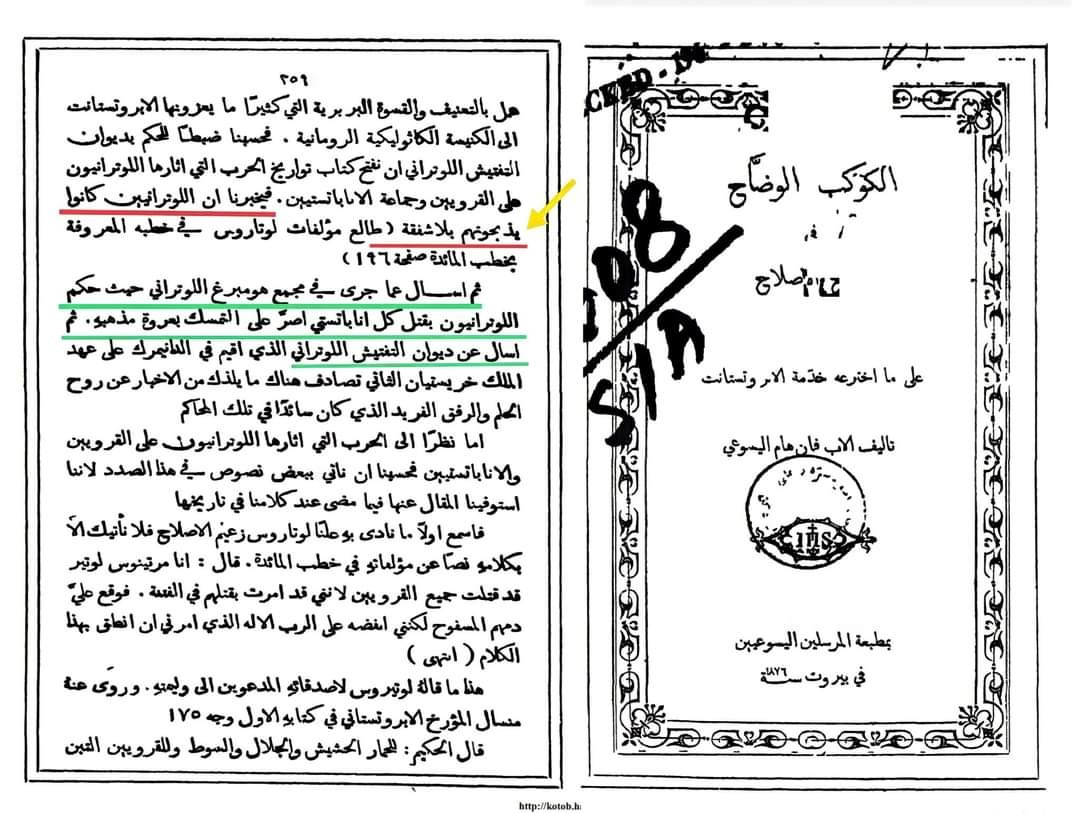 ٢٥٩
هل بالتعنيف والقسوة البربرية التي كثيرًا ما يعزونها الابروتستانت
الى الكنيسة الكاثوليكية الرومانية . فحسبنا ضبطًا للحكم بديوان
التفتيش اللوتراني ان نفتح كتاب تواريخ الحرب التي اثارها اللوترانيون
على القرويين وجماعة الاناباتستيين . فيخبرنا ان اللوترانيين كانوا
يذبحونهم بلا شفقة ( طالع مؤلفات لوتاروس في خطبه المعروفة
بخطب المائدة صفحة ١٩٦ )
ثم اسال عما جرى في مجمع هومبرغ اللوتراني حيث حكم
اللوترانيون بقتل كل اناباتستي اصرَّ على التمسك بعروة مذهبهِ . ثم
اسال عن ديوان التفتيش اللوتراني الذي اقيم في الدانيمرك على عهد
الملك خريستيان الثاني تصادف هناك ما يلذك من الاخبار عن روح
الحلم والرفق الفريد الذي كان سائدًا في تلك المحاكم
اما نظرًا الى الحرب التي اثارها اللوترانيون على القرويين
والاناباتستيين فحسبنا ان ناتي ببعض نصوص في هذا الصدد لاننا
استوفينا المقال عنها فيما مضى عند كلامنا في تاريخها
فاسمع اولًا ما نادى بهِ علنًا لوتاروس زعيم الاصلاح فلا نأتيك الَّا
بكلامهِ نصًا عن مؤلفاتهِ في خطب المائدة . قال : انا مرتينوس لوتير
قد قتلت جميع القرويين لانني قد امرت بقتلهم في الفتنة . فوقع عليَّ
دمهم المسفوح لكنني انفضه على الرب الاله الذي امرني ان انطق بهذا
الكلام ( انتهى )
هذا ما قالهُ لوتيروس لاصدقائهِ المدعوين الى وليمتهِ . وروى عنهُ
منسال المؤرخ الابروتستاني في كتابهِ الاول وجه ١٧٥
قال الحكيم : للحمار الحشيش والجلال والسوط وللقرويين التبن
الكوكب الوضَّاح
في
صلاح
على ما اخترعه خدمة الابروتستانت
تاليف الاب فان هام اليسوعي
IHS
بمطبعة المرسلين اليسوعيين
في بيروت سنة ١٨٧٦
http://kotob.ha